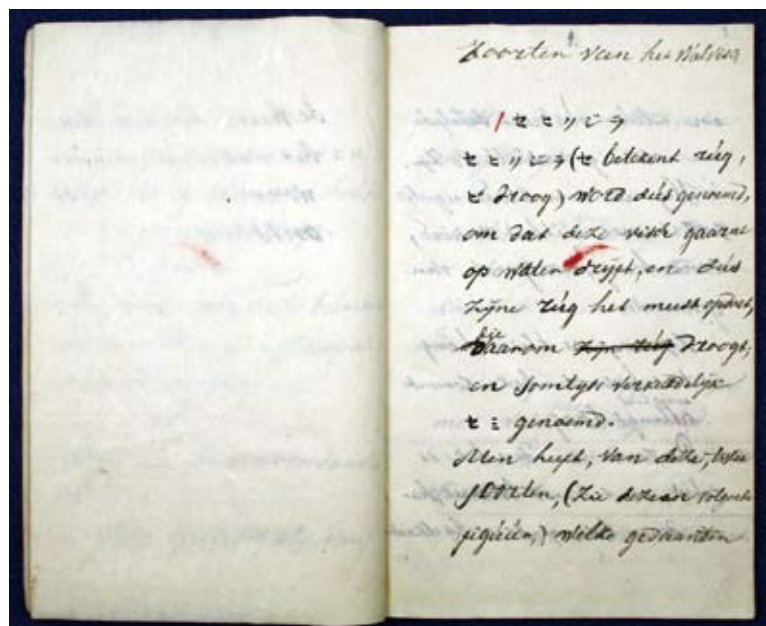 Zoorten van het Walvisch
セミクジラ
セミクジラ (セ betekent rúg,
ミ droog) word dús genoemd,
om dat deze visch gaarne
op water drijft, en dús
zijne rúg het meest opdroogt,
daarom die zijn rúg droogt,
en somtyds verkeerdelijk
セミ genoemd.
Men heeft, van deze, twee
soorten, (Zie deze en volgende
figúúren,) welke gedaanten